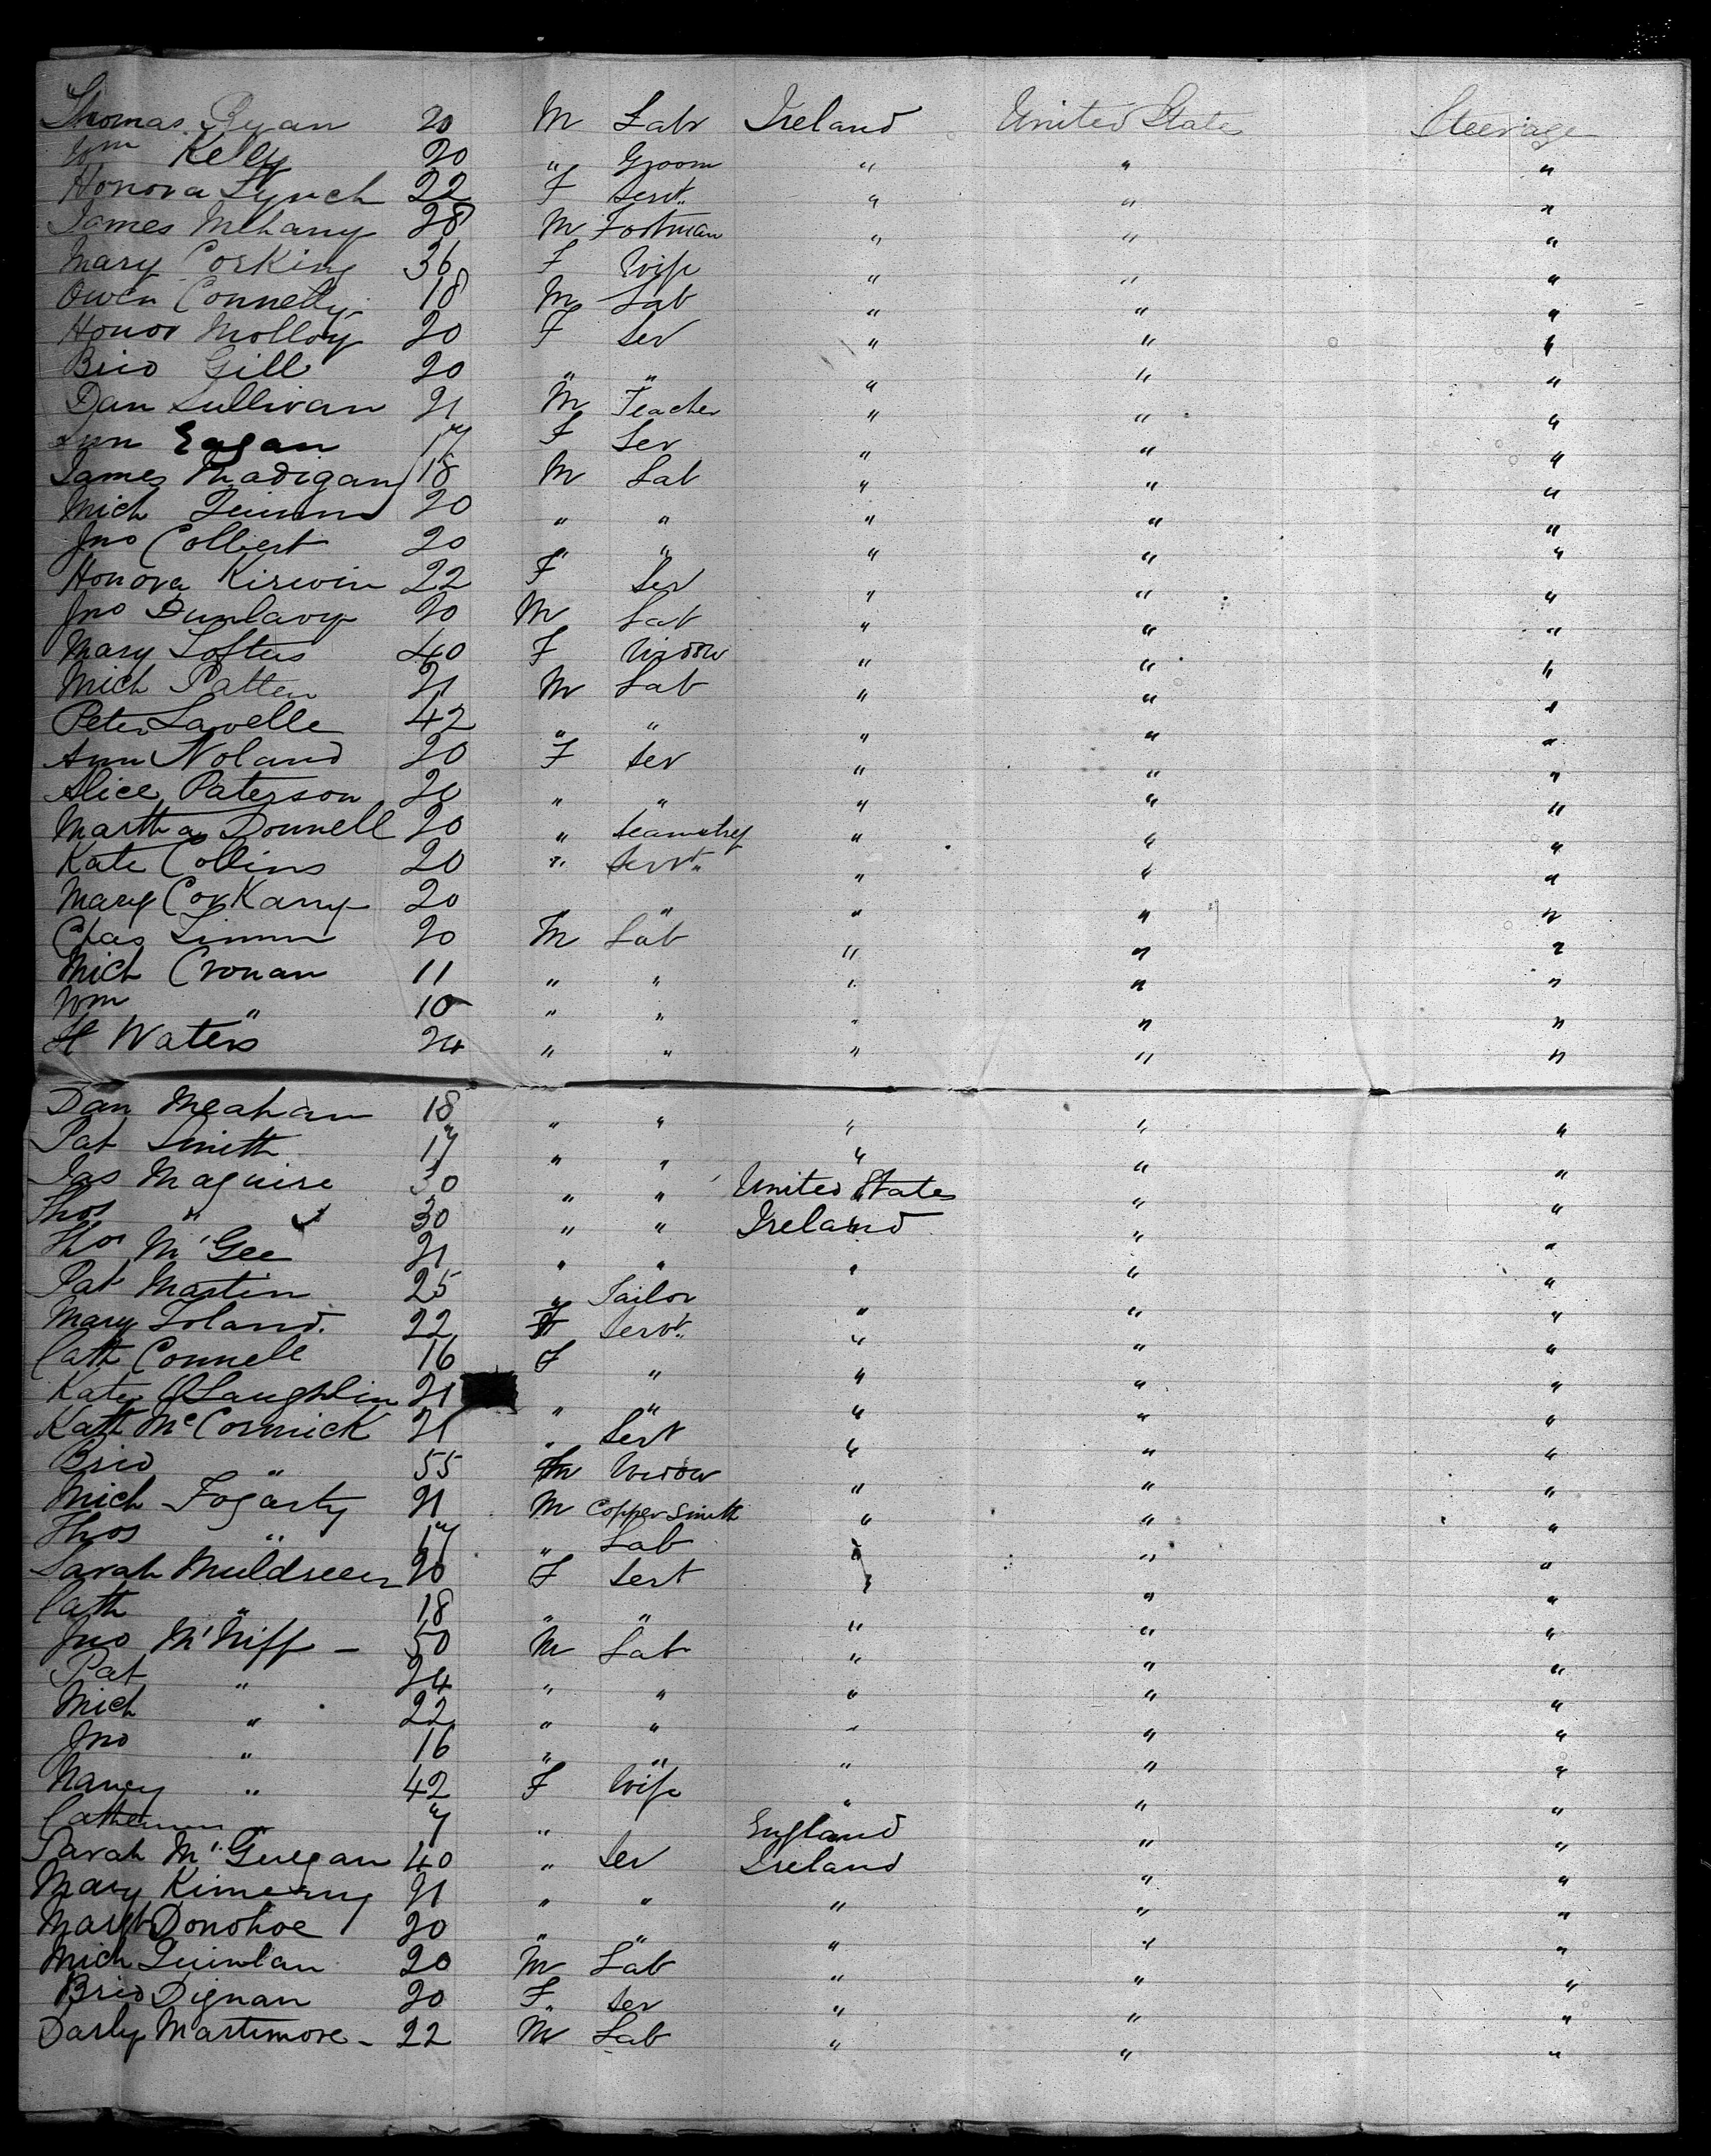 Thomas Ryan 20 M Labr Ireland United States Steerage
Wm Kelly 20 " Groom " " "
Honora Lynch 22 F Servt " " "
James McHany 28 M Footman " " "
Mary Corking 36 F Wife " " "
Owen Connelly 18 M Lab " " "
Honor Molloy 20 F Ser " " "
Brid Gill 20 " " " " "
Dan Sullivan 21 M Teacher " " "
Ann Eagan 17 F Ser " " "
James Madigan 18 M Lab " " "
Mich Quinn 20 " " " " "
Jno Colbert 20 " " " " "
Honora Kirwin 22 F Ser " " "
Jno Dunlavy 20 M Lab " " "
Mary Loftus 40 F Widow " " "
Mich Patten 21 M Lab " " "
Peter Lavelle 42 " " " " "
Ann Noland 20 F Ser " " "
Alice Paterson 20 " " " " "
Martha Donnell 20 " Seamstress " " "
Kate Collins 20 " Servt " " "
Mary CorKany 20 " " " " "
Chas 20 M Lab " " "
Mich Cronan 11 " " " " "
Wm " 10 " " " " "
H Waters 24 " " " " "
Dan Meahan 18 " " " " "
Pat Smith 17 " " " " "
Jas Maguire 30 " " United States " "
Thos " 30 " " Ireland " "
Thos M'Gee 21 " " " " "
Pat Martin 25 " Tailor " " "
Mary Toland. 22 F Servt " " "
Cath Connell 16 F " " " "
Katey O'Laughlin 21 " " " " "
Kath McCormick 21 " Sert " " "
Brid " 55 Widow " " "
Mich Fogarty 21 M Copper Smith " " "
Thos " 17 " Lab " " "
Sarah 20 F Sert " " "
Cath " 18 " " " " "
Jno M'Niff - 50 M Lab " " "
Pat " 24 " " " " "
Mich " 22 " " " " "
Jno " 16 " " " " "
Nancy " 42 F Wife " " "
Catherine " 7 " England " "
Sarah M'Guegan 40 " Ser Ireland " "
Mary Kimerny 21 " " " " "
Margt Donohoe 20 " " " " "
Mich Quinlan 20 M Lab " " "
Brid Dignan 20 F Ser " " "
Darly Martimore - 22 M Lab " " "